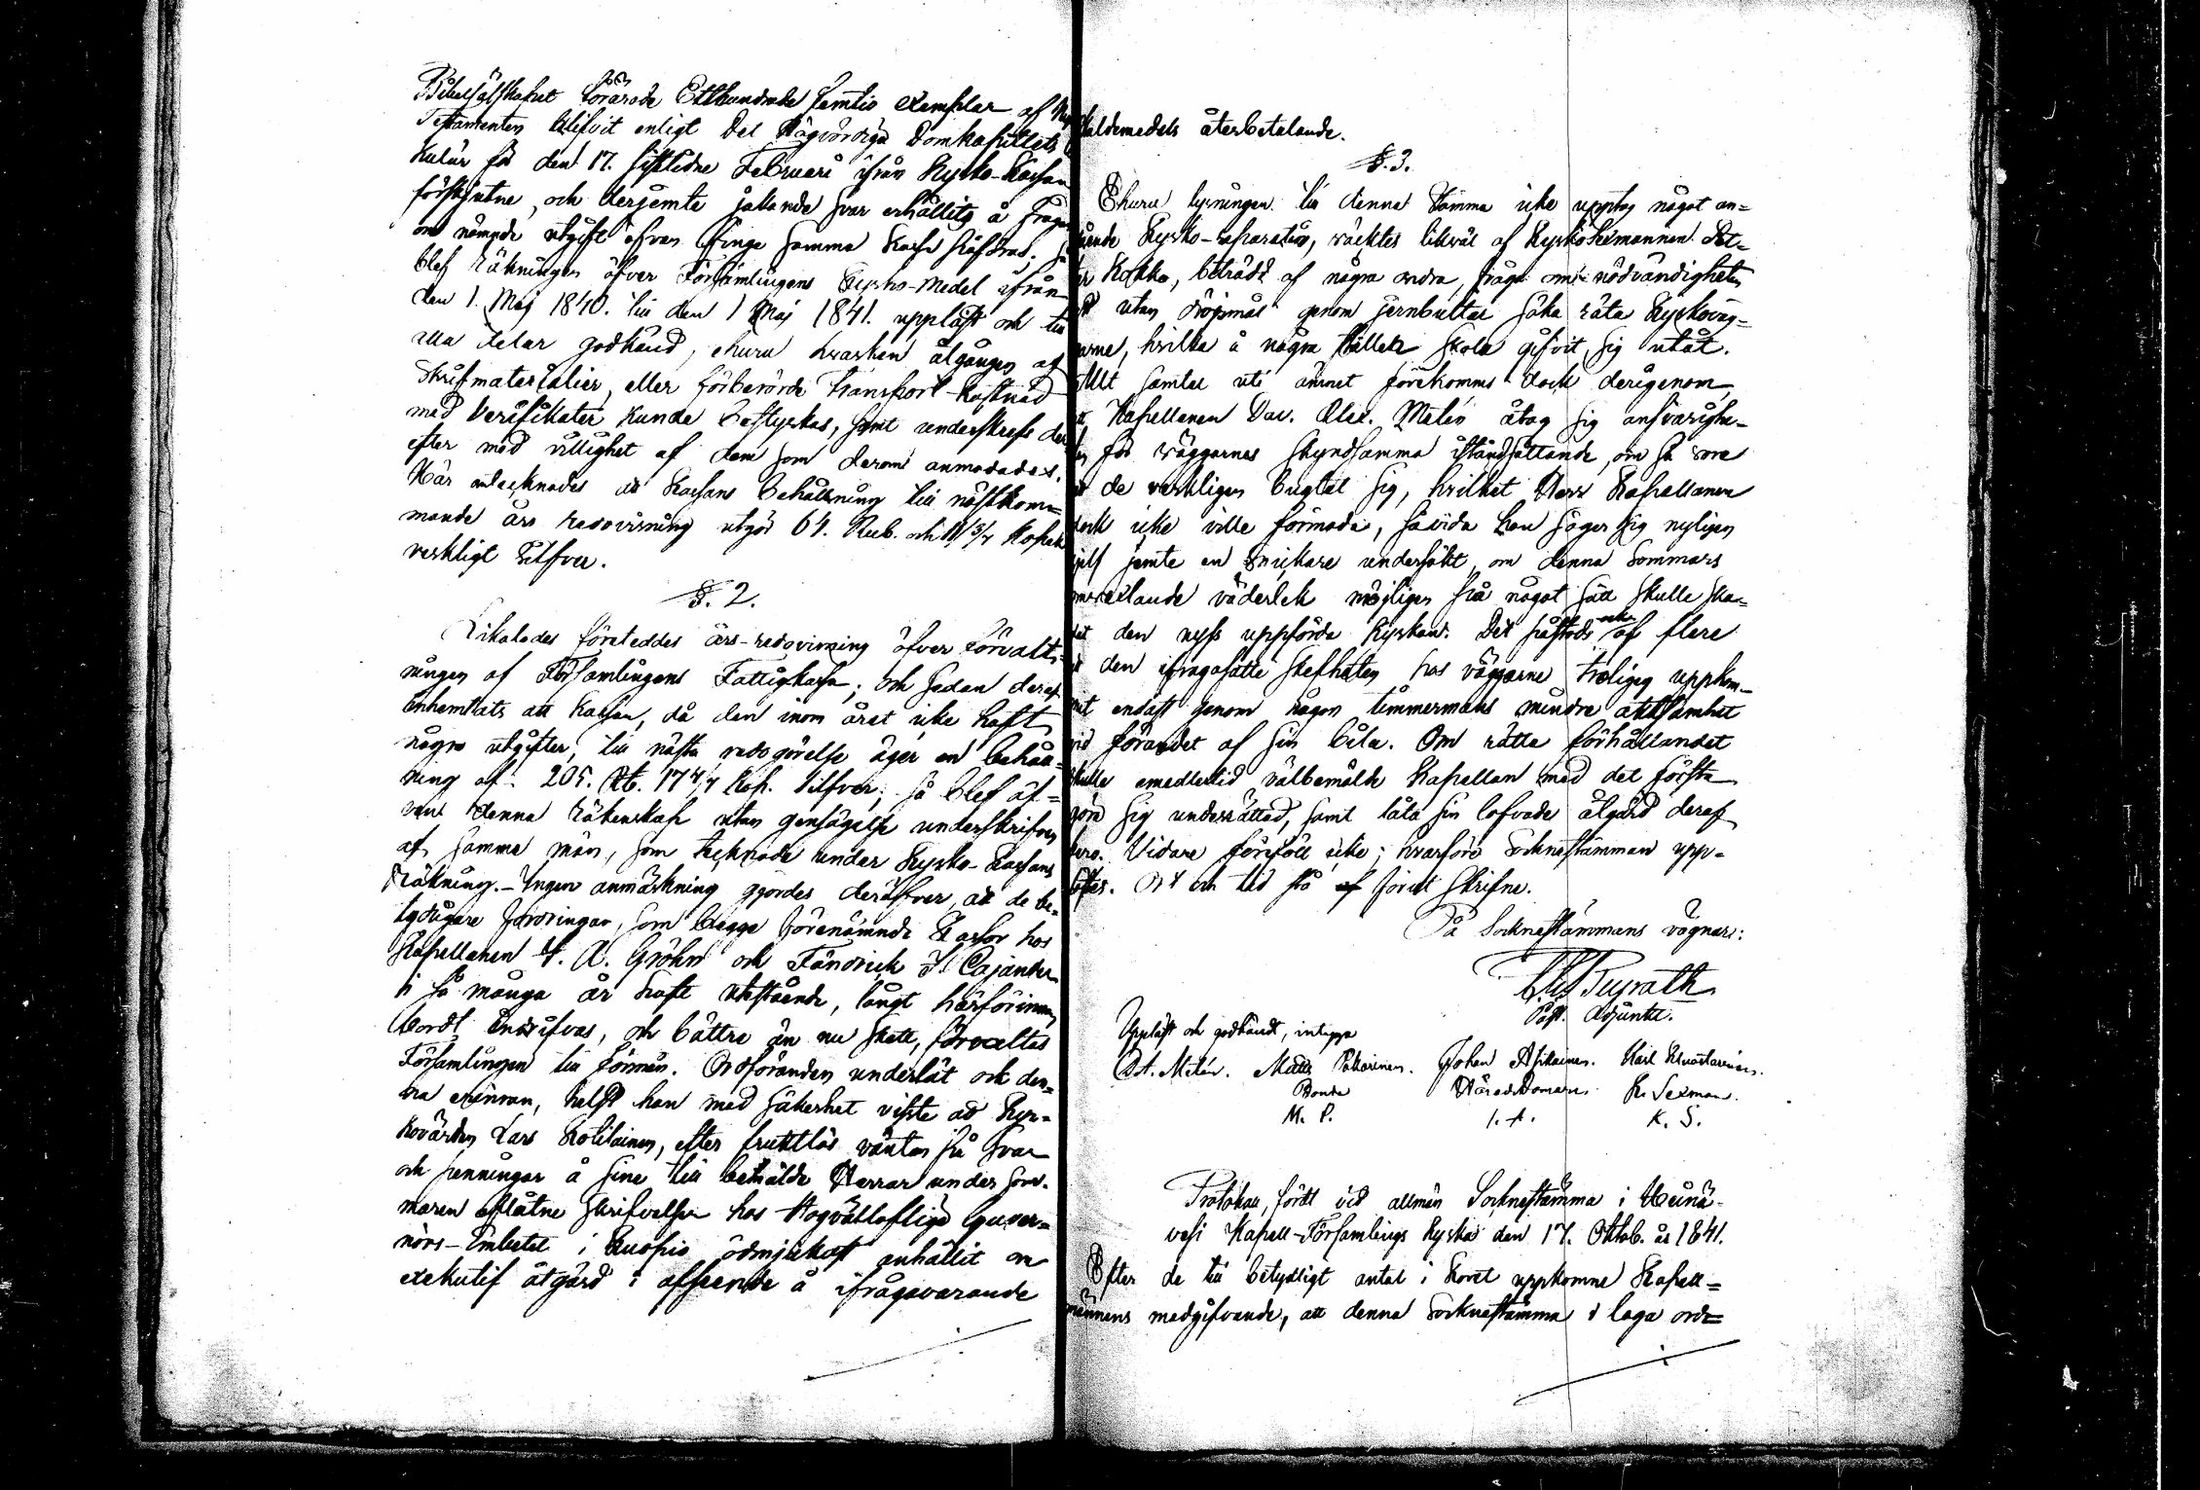 Bibelsälskapet förärade Etthundrade femtio exemplar af Nya
Testamenten blifvit enligt Det Högvördiga Domkapitlets
kulär för den 17. sistlidne Februari ifrån Kyrko-Kassan
förskjutne, och derjemte jakande svar erhållits å frågan
om nämnde utgift ofvan finge samma Kassa påföras; så
blef räkningen öfver Församlingens Kyrko-Medel ifrån
den 1. Maj 1840. till den 1 Maj 1841. uppläst och till
alla delar godkänd, ehuru hvarken åtgången af
Skrifmaterialier, eller förberörde Transport-kostnad
med Verifikater kunde bestyrkas, samt underskrefs der
efter med villighet af dem som derom anmodades.
Här antecknades att Kassans behållning till nästkom-
mande års redovisning utgör 64. Rub. och 11 3/7 Kopek
verkligt Silfver.
§. 2.
Likaledes företeddes års-redovisning öfver förvalt-
ningen af Församlingens Fattigkassa; och sedan deraf
inhemtats att Kassan, då den inom året icke haft
några utgifter, till nästa redogörelse äger en behåll-
ning af 205. Rb. 17 4/7 Kop. Silfver; så blef äf-
ven denna räkenskap utan gensägelse underskrifven
af samma män, som tecknade under Kyrko-Kassans
Räkning. - Ingen anmärkning gjordes deröfver, att de be-
tydligare fordringar, som begge förenämnde Kassor hos
Kapellanen A. Gröhn och Fändrick J. Cajander
i så många år haft utestående, långt härförinnan
bordt indrifvas, och bättre än nu skett, förvaltas
Församlingen till förmån. Ordföranden underlät ock den-
na erinran, helst han med säkerhet visste att Kyr-
kovärden Lars Kotilainen, efter fruktlös väntan på svar
och penningar å sine till bemälde Herrar under som-
maren aflåtne skrifvelser hos Högvälloflige Guver-
nörs-Embetet i Kuopio ödmjukast anhållit om
exekutif åtgärd i afseende å ifrågavarande
skuldemedels återbetalande.
§. 3.
Ehuru lysningen till denna Stämma icke upptog något an-
gående Kyrko-reparation, väcktes likväl af Kyrko Sexmannen Pet-
ter Kokko, biträdd af några andra, fråga om nödvändigheten
att utan dröjsmål genom jernbultar söka räta Kyrkoväg-
garne, hvilka å några ställen skola gifvit sig utåt.
Allt samtal uti ämnet förekomms dock derigenom,
att Kapellanen Dav. Alex. Melén åtog sig ansvarighe-
ten för väggarnes skyndsamma iståndsättande, om så vore
att de verkligen bugtat sig, hvilket Herr Kapellanen
dock icke ville förmoda, såvida han säger sig nyligen
sjelf jemte en snickare undersökt, om denna Sommars
omvexlande väderlek möjligen på något sätt skulle ska-
dat den nyss uppförda Kyrkan. Det påstods ock af flere
att den ifrågasatte skefheten hos väggarne troligen uppkom-
mit endast genom någon timmermans mindre aktsamhet
vid förandet af sin bila. Om rätta förhållandet
skulle emedlertid välbemälde Kapellan med det första
göra sig underrättad, samt låta sin lofvade åtgärd deraf
bero. Vidare föreföll icke; hvarföre Sockne stämman upp-
löstes. Ort och tid som förut skrifne.
På Sockne stämmans vägnar:
Past. Adjunkt.
Uppläst och godkändt, intyga
D. A. Melén. Matts Pakarinen. Johan Asikainen. Karl Kvastarinen.
Bonde Häradsdomare. K. Sexman.
M. P. I. A. K. S.
Protokoll, fördt vid allmän Sockne stämma i Heinä-
vesi Kapell-Församlings Kyrka den 17. Oktob. år 1841.
Efter de till betydligt antal i Kovet uppkomne Kapell-
männens medgifvande, att denna Sockne stämma i laga ord-